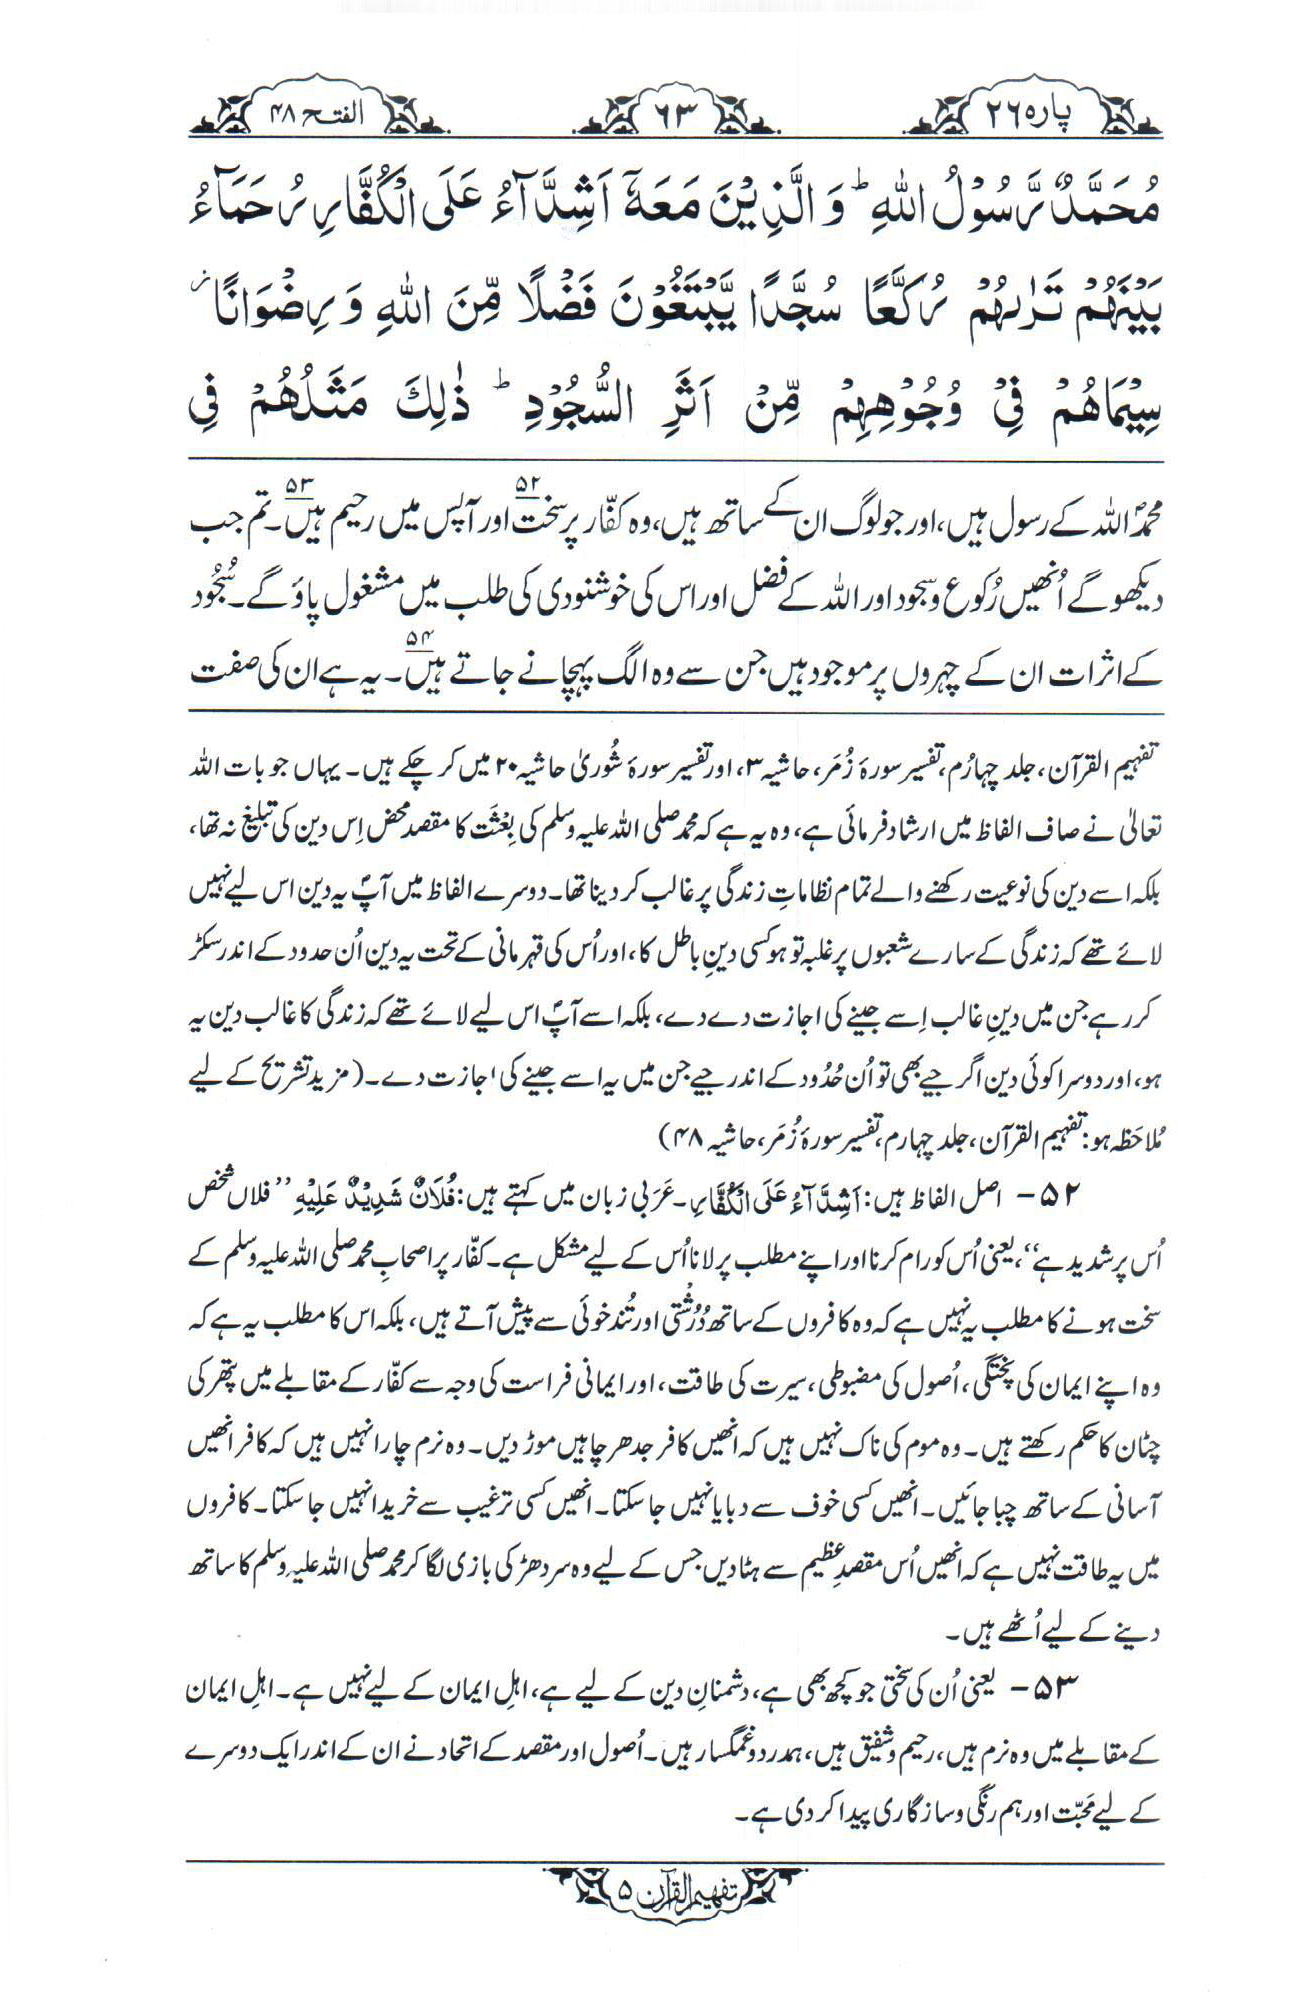 پارہ ۲۶
۶۳
الفتح ۴۸
مُحَمَّدٌ رَّسُوْلُ اللهِ ؕ وَ الَّذِيْنَ مَعَهٗۤ اَشِدَّآءُ عَلَى الْكُفَّارِ رُحَمَآءُ
بَيْنَهُمْ تَرٰىهُمْ رُكَّعًا سُجَّدًا يَّبْتَغُوْنَ فَضْلًا مِّنَ اللهِ وَ رِضْوَانًا ؗ
سِيْمَاهُمْ فِيْ وُجُوْهِهِمْ مِّنْ اَثَرِ السُّجُوْدِ ؕ ذٰلِكَ مَثَلُهُمْ فِي
محمدؐ اللہ کے رسول ہیں، اور جو لوگ ان کے ساتھ ہیں، وہ کفّار پر سخت۵۲ اور آپس میں رحیم ہیں۵۳۔ تم جب
دیکھو گے اُنھیں رُکوع و سجود اور اللہ کے فضل اور اس کی خوشنودی کی طلب میں مشغول پاؤ گے۔ سُجُود
کے اثرات ان کے چہروں پر موجود ہیں جن سے وہ الگ پہچانے جاتے ہیں۵۴۔ یہ ہے ان کی صفت
تفہیم القرآن، جلد چہارُم، تفسیر سورۂ زُمَر، حاشیہ ۳، اور تفسیر سورۂ شُوریٰ حاشیہ ۲۰ میں کر چکے ہیں۔ یہاں جو بات اللہ
تعالیٰ نے صاف الفاظ میں ارشاد فرمائی ہے، وہ یہ ہے کہ محمد صلی اللہ علیہ وسلم کی بِعْثَت کا مقصد محض اِس دین کی تبلیغ نہ تھا،
بلکہ اسے دین کی نوعیت رکھنے والے تمام نظاماتِ زندگی پر غالب کر دینا تھا۔ دوسرے الفاظ میں آپؐ یہ دین اس لیے نہیں
لائے تھے کہ زندگی کے سارے شعبوں پر غلبہ تو ہو کسی دینِ باطل کا، اور اُس کی قہرمانی کے تحت یہ دین اُن حدود کے اندر سکڑ
کر رہے جن میں دینِ غالب اِسے جینے کی اجازت دے دے، بلکہ اسے آپؐ اس لیے لائے تھے کہ زندگی کا غالب دین یہ
ہو، اور دوسرا کوئی دین اگر جیے بھی تو اُن حُدُود کے اندر جیے جن میں یہ اسے جینے کی اجازت دے۔ (مزید تشریح کے لیے
مُلاحَظہ ہو: تفہیم القرآن، جلد چہارم، تفسیر سورۂ زُمَر، حاشیہ ۴۸)
۵۲ – اصل الفاظ ہیں: اَشِدَّآءُ عَلَى الْكُفَّارِ۔ عَرَبی زبان میں کہتے ہیں: فُلَانٌ شَدِيْدٌ عَلَيْهِ ”فلاں شخص
اُس پر شدید ہے“، یعنی اُس کو رام کرنا اور اپنے مطلب پر لانا اُس کے لیے مشکل ہے۔ کفّار پر اصحابِ محمد صلی اللہ علیہ وسلم کے
سخت ہونے کا مطلب یہ نہیں ہے کہ وہ کافروں کے ساتھ دُرُشتی اور تُند خوئی سے پیش آتے ہیں، بلکہ اس کا مطلب یہ ہے کہ
وہ اپنے ایمان کی پختگی، اُصول کی مضبوطی، سیرت کی طاقت، اور ایمانی فراست کی وجہ سے کفّار کے مقابلے میں پتھر کی
چٹان کا حکم رکھتے ہیں۔ وہ موم کی ناک نہیں ہیں کہ انھیں کافر جدھر چاہیں موڑ دیں۔ وہ نرم چارا نہیں ہیں کہ کافر انھیں
آسانی کے ساتھ چبا جائیں۔ انھیں کسی خوف سے دبایا نہیں جا سکتا۔ انھیں کسی ترغیب سے خریدا نہیں جا سکتا۔ کافروں
میں یہ طاقت نہیں ہے کہ انھیں اُس مقصدِ عظیم سے ہٹا دیں جس کے لیے وہ سر دھڑ کی بازی لگا کر محمد صلی اللہ علیہ وسلم کا ساتھ
دینے کے لیے اُٹھے ہیں۔
۵۳ – یعنی اُن کی سختی جو کچھ بھی ہے، دشمنانِ دین کے لیے ہے، اہلِ ایمان کے لیے نہیں ہے۔ اہلِ ایمان
کے مقابلے میں وہ نرم ہیں، رحیم و شفیق ہیں، ہمدرد و غمگسار ہیں۔ اُصول اور مقصد کے اتحاد نے ان کے اندر ایک دوسرے
کے لیے مَحَبّت اور ہم رنگی و سازگاری پیدا کر دی ہے۔
تفہیم القرآن ۵